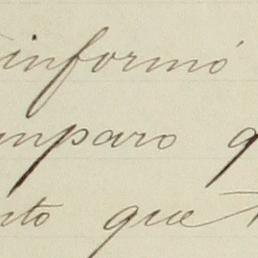 informó
amparo q
nto que